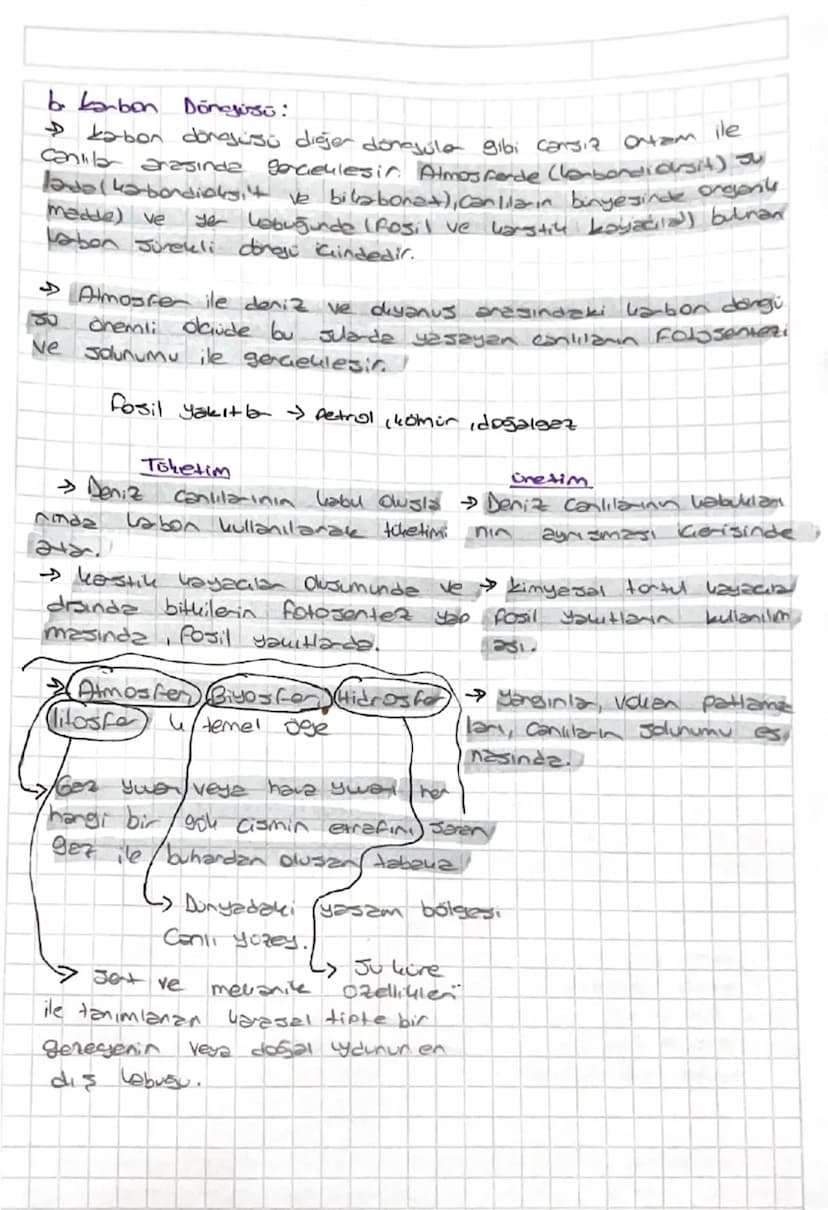 b. Karbon Döngüsü:
→ Karbon döngüsü diğer döngüler gibi cansız ortam ile
canlılar arasında gerçekleşir. Atmosferde (karbondioksit) su
larda (karbondioksit ve bikarbonat), canlıların bünyesinde organik
madde) ve yer kabuğunda (fosil ve karstik kayaçlar) bulunan
karbon sürekli döngü içindedir.
→ Atmosfer ile deniz ve okyanus arasındaki karbon döngü
sü önemli ölçüde bu sularda yaşayan canlıların fotosentezi
ve solunumu ile gerçekleşir.
fosil yakıtlar → Petrol, kömür, doğalgaz
Tüketim
→ Deniz canlılarının kabuk oluşla
rında karbon kullanılarak tüketimi
artar.
→ karstik kayaçları oluşumunda ve
bitkilerin fotosentez yap
masında, fosil yakıtlarda.
üretim
→ Deniz canlılarının kabukları
nın ayrışması içerisinde
→ kimyasal tortul kayaçlar
fosil yakıtların kullanılm
ası.
→ Yangınlar, volkan patlama
ları, canlıların solunumu es
nasında.
→ Atmosfer, Biyosfer, Hidrosfer
litosfer 4 temel öge
→ Gaz yuvarı veya hava yuvarı her
hangi bir gök cismin etrafını saran
gaz ile buhardan oluşan tabaka
→ Dünyadaki yaşam bölgesi
Canlı yüzey.
→ Su küre
→ Sert ve mekanik özellikleri
ile tanımlanan karasal tipte bir
gezegenin veya doğal uydunun en
dış kabuğu.